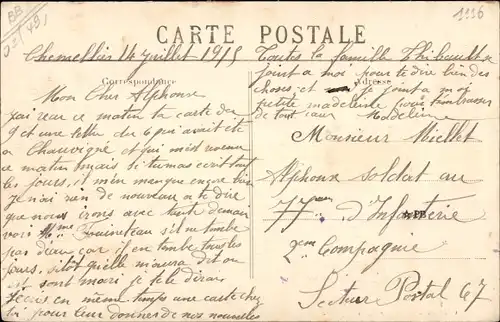 1996
CARTE POSTALE
Chemellier 14 juillet 1915
Correspondance
Mon Cher Alphonse
j'ai reçu ce matin ta carte du
9 et une lettre du 6 qui avait été
a Chauvigné et qui m'est revenu
ce matin mais si tu mas ecrit tout
les jours, il m'en manque encore bien
Je n'ai rien de nouveau a te dire
que nous irons avec tante demain
voir Mme s'il ne tombe
pas d'eau car il en tombe tous les
jours. sitôt qu'elle mourra dit on
et son mari je te le dirai
Je vais en même temps une carte chez
toi pour leur donner de nos nouvelles
Toutes la famille Thibault se
joint a moi pour te dire bien des
Adresse
choses et je joint a moi
petite madeleine pour t'embrasser
de tout cœur Madeleine
Monsieur Miellet
Alphonse soldat au
77eme d'Infanterie
2eme Compagnie
Secteur Postal 67